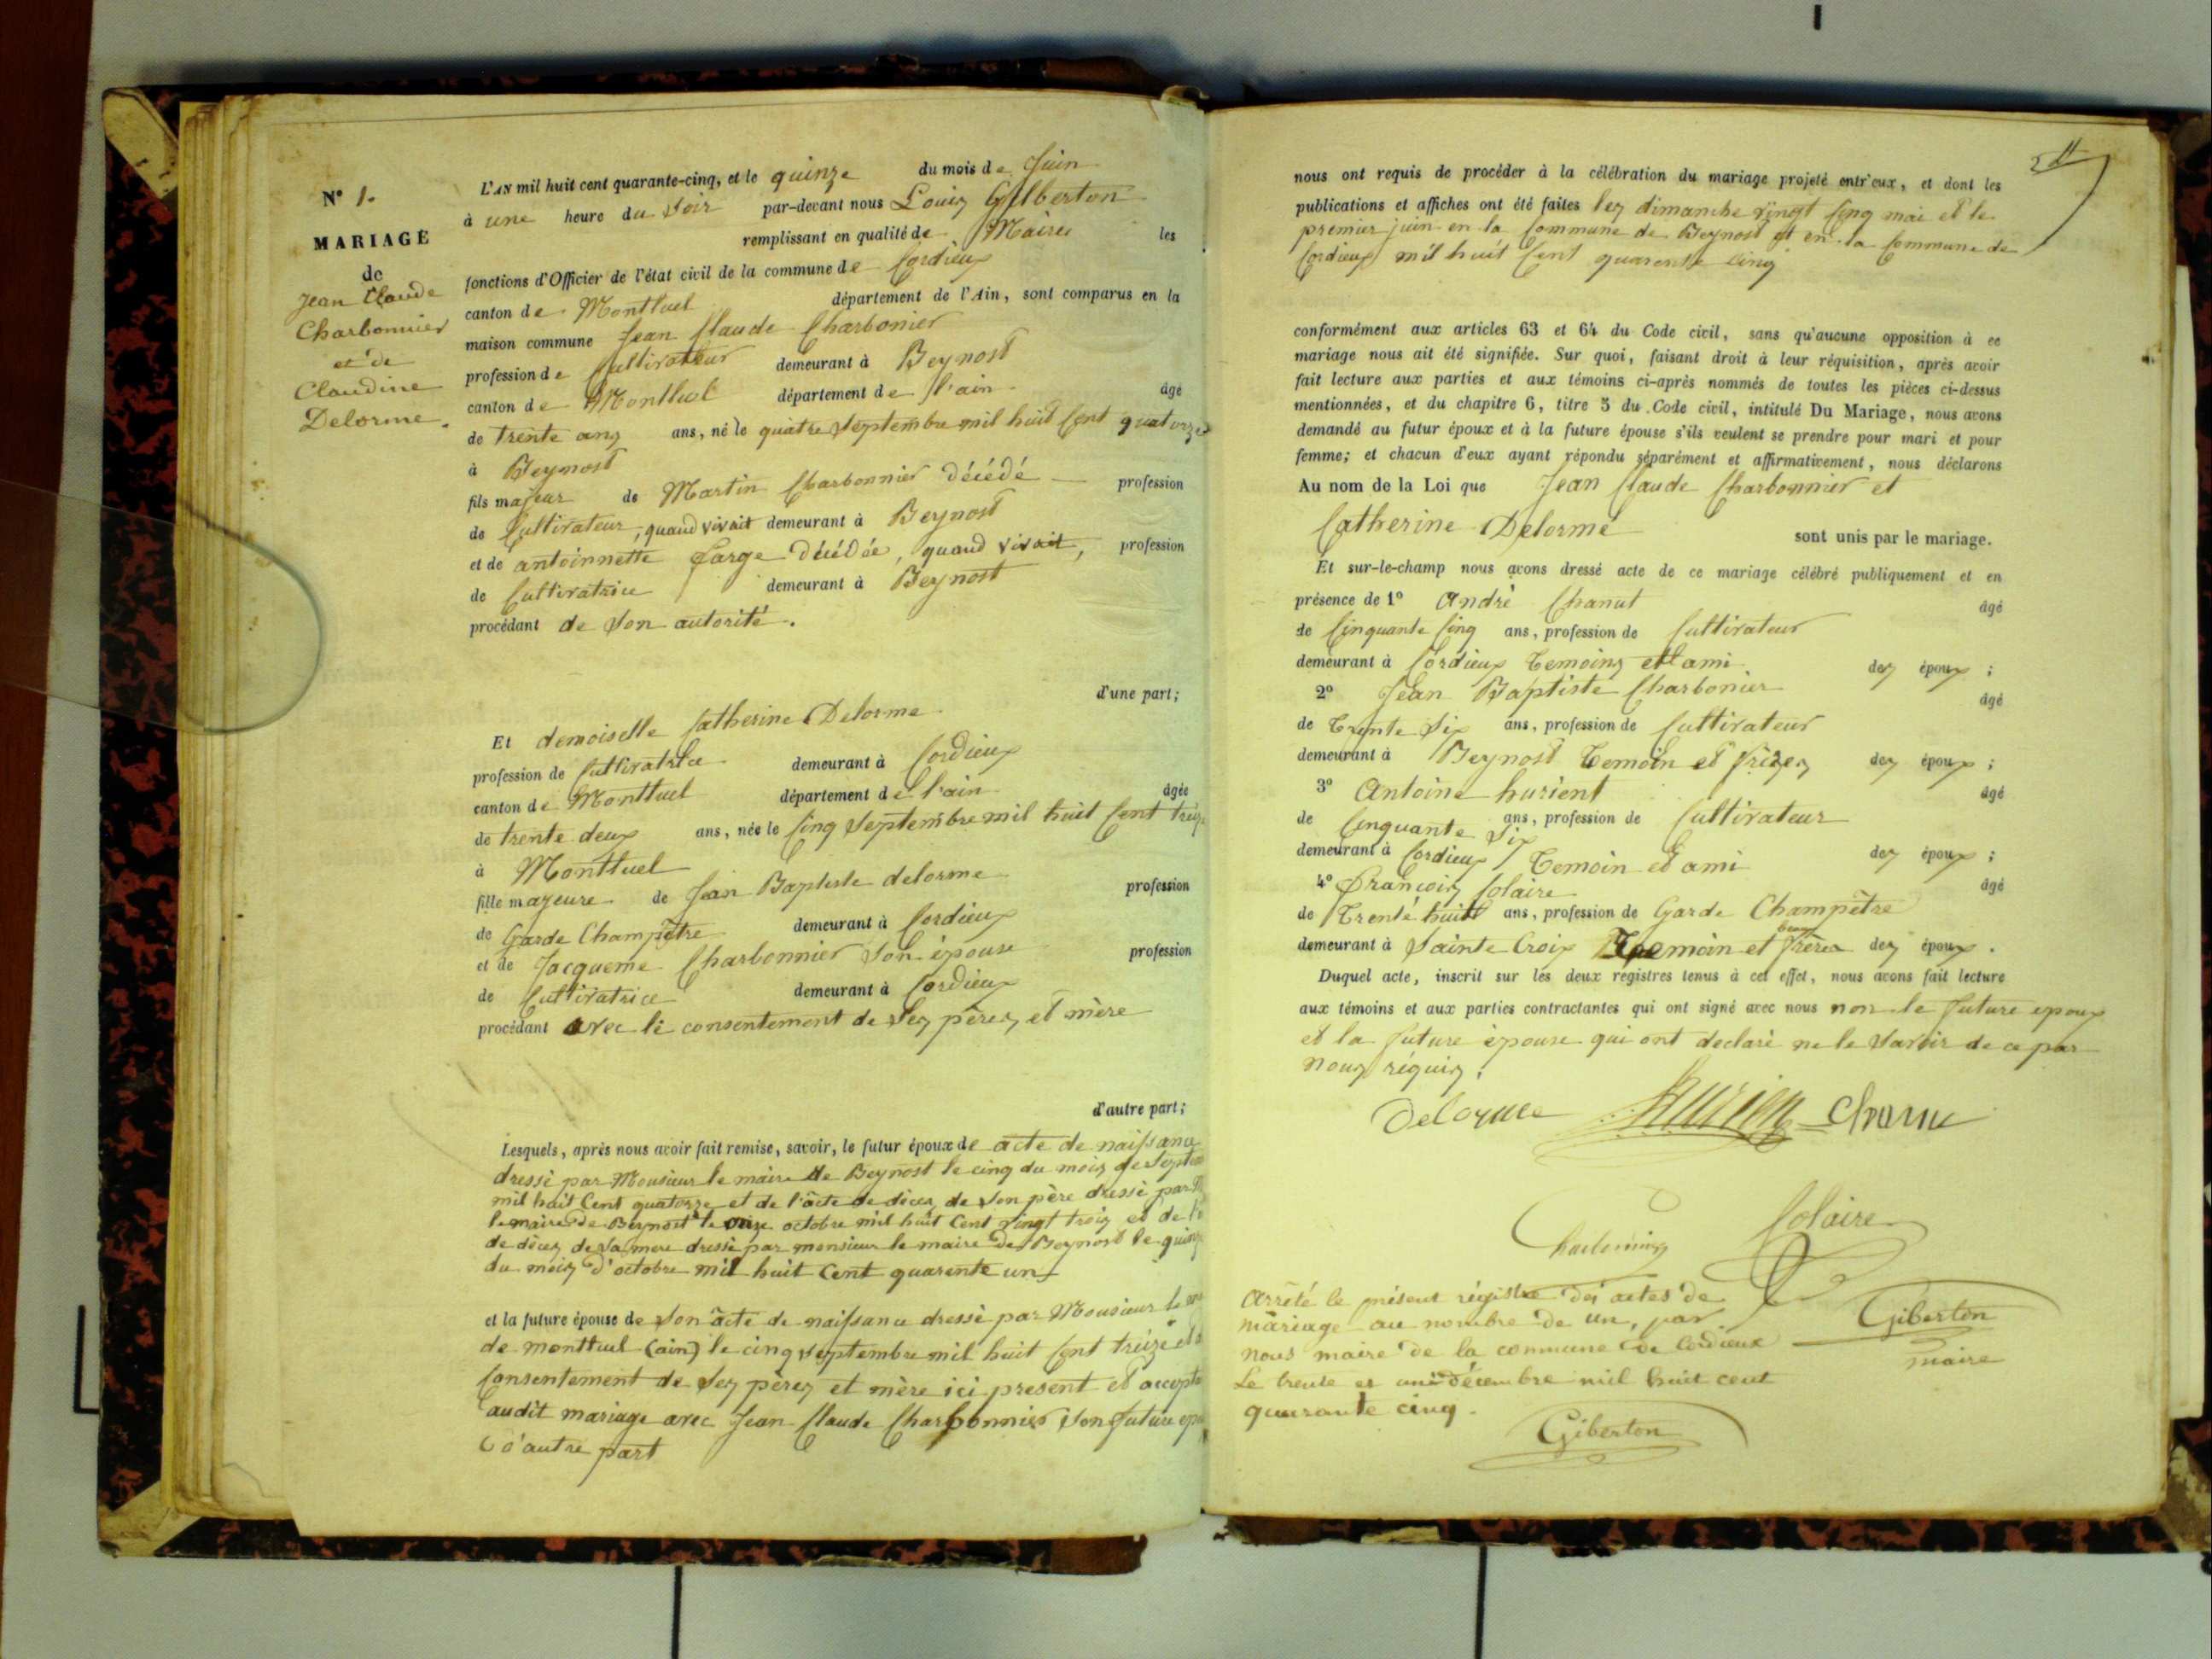 N° 1.
MARIAGE
de
Jean Claude
Charbonnier
et de
Claudine
Delorme.
L'AN mil huit cent quarante-cinq, et le quinze du mois de Juin
à une heure du soir par-devant nous Louis Gilberton
remplissant en qualité de Maire les
fonctions d'Officier de l'état civil de la commune de Cordieux
canton de Montluel département de l'Ain, sont comparus en la
maison commune Jean Claude Charbonier
profession de Cultivateur demeurant à Beynost
canton de Montluel département de l'ain âgé
de trente ans ans, né le quatre Septembre mil huit Cent quatorze
à Beynost
fils majeur de Martin Charbonnier décédé profession
de Cultivateur, quand vivait demeurant à Beynost
et de antoinnette Farge décédée, quand vivait, profession
de Cultivatrice demeurant à Beynost
procédant de Son autorité.
d'une part;
Et demoiselle Catherine Delorme
profession de Cultivatrice demeurant à Cordieux
canton de Montluel département de l'ain âgée
de trente deux ans, née le Cinq Septembre mil huit Cent treize
à Montluel
fille majeure de Jean Baptiste delorme profession
de Garde Champêtre demeurant à Cordieux
et de Jacqueme Charbonnier Son épouse profession
de Cultivatrice demeurant à Cordieux
procédant avec le consentement de Ses pères et mère
d'autre part;
Lesquels, après nous avoir fait remise, savoir, le futur époux de acte de naissance
dressé par Monsieur le maire de Beynost le cinq du mois de Septe
mil huit Cent quatorze et de l'acte de décès de Son père dressé par M
le maire de Beynost le onze octobre mil huit Cent vingt trois et de l'a
de décès de Sa mere dressé par monsieur le maire de Beynost le quinze
du mois d'octobre mil huit Cent quarente un
et la future épouse de Son acte de naissance dressé par Monsieur le
de montluel (ain) le cinq Septembre mil huit Cent treize et
Consentement de Ses pères et mère ici présent et accepte
audit mariage avec Jean Claude Charbonnier Son future ep
d'autre part
nous ont requis de procéder à la célébration du mariage projeté entr'eux, et dont les
publications et affiches ont été faites les dimanche vingt Cinq mai et le
premier juin en la Commune de Beynost et en la Commune de
Cordieux mil huit Cent quarente Cinq
conformément aux articles 63 et 64 du Code civil, sans qu'aucune opposition à ce
mariage nous ait été signifiée. Sur quoi, faisant droit à leur réquisition, après avoir
fait lecture aux parties et aux témoins ci-après nommés de toutes les pièces ci-dessus
mentionnées, et du chapitre 6, titre 5 du Code civil, intitulé Du Mariage, nous avons
demandé au futur époux et à la future épouse s'ils veulent se prendre pour mari et pour
femme; et chacun d'eux ayant répondu séparément et affirmativement, nous déclarons
Au nom de la Loi que Jean Claude Charbonnier et
Catherine Delorme sont unis par le mariage.
Et sur-le-champ nous avons dressé acte de ce mariage célébré publiquement et en
présence de 1° André Chanut âgé
de Cinquante Cinq ans, profession de Cultivateur
demeurant à Cordieux Temoins et ami des époux ;
2° Jean Baptiste Charbonier âgé
de Trente Six ans, profession de Cultivateur
demeurant à Beynost Temoin et frères des époux ;
3° Antoine hurient âgé
de Cinquante Six ans, profession de Cultivateur
demeurant à Cordieux Temoin et ami des époux ;
4° François Colaire âgé
de Trente huit ans, profession de Garde Champêtre
demeurant à Sainte Croix Temoin et beau frère des époux .
Duquel acte, inscrit sur les deux registres tenus à cet effet, nous avons fait lecture
aux témoins et aux parties contractantes qui ont signé avec nous non le future epoux
et la future épouse qui ont declaré ne le Savoir de ce par
nous réquis.
Delorme hurien
Colaire
Arrêté le présent régistre des actes de
mariage au nombre de un, par
nous maire de la commune de Cordieux
Le trente et un décembre mil huit cent
quarante cinq.
Giberton
maire
Giberton